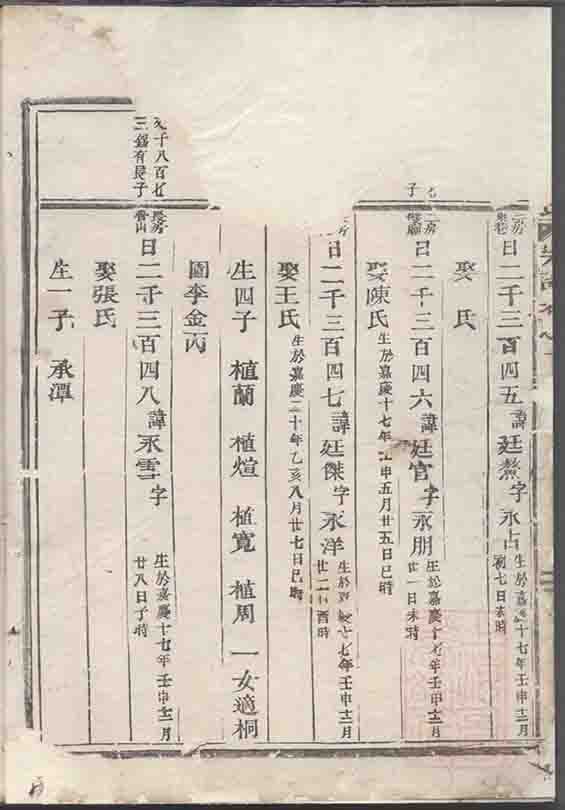 日二千三百四五 諱廷 字永占 生於嘉慶十七年壬申十二月初七日未時
娶 氏
二房 日二千三百四六 諱廷官 字永朋 生於嘉慶十七年壬申十二月廿一日未時
子
娶陳氏 生於嘉慶十七年壬申五月廿五日巳時
日二千三百四七 諱廷傑 字永洋 生於嘉慶十七年壬申十二月廿二日酉時
娶王氏 生於嘉慶二十年乙亥八月廿七日巳時
生四子 植蘭 植煊 植寬 植周 一女適桐
圃李金丙
千八百七
三 有長子
長房 山 日二千三百四八 諱永雪 字 生於嘉慶十七年壬申十二月廿八日子時
娶張氏
生一子 承潭